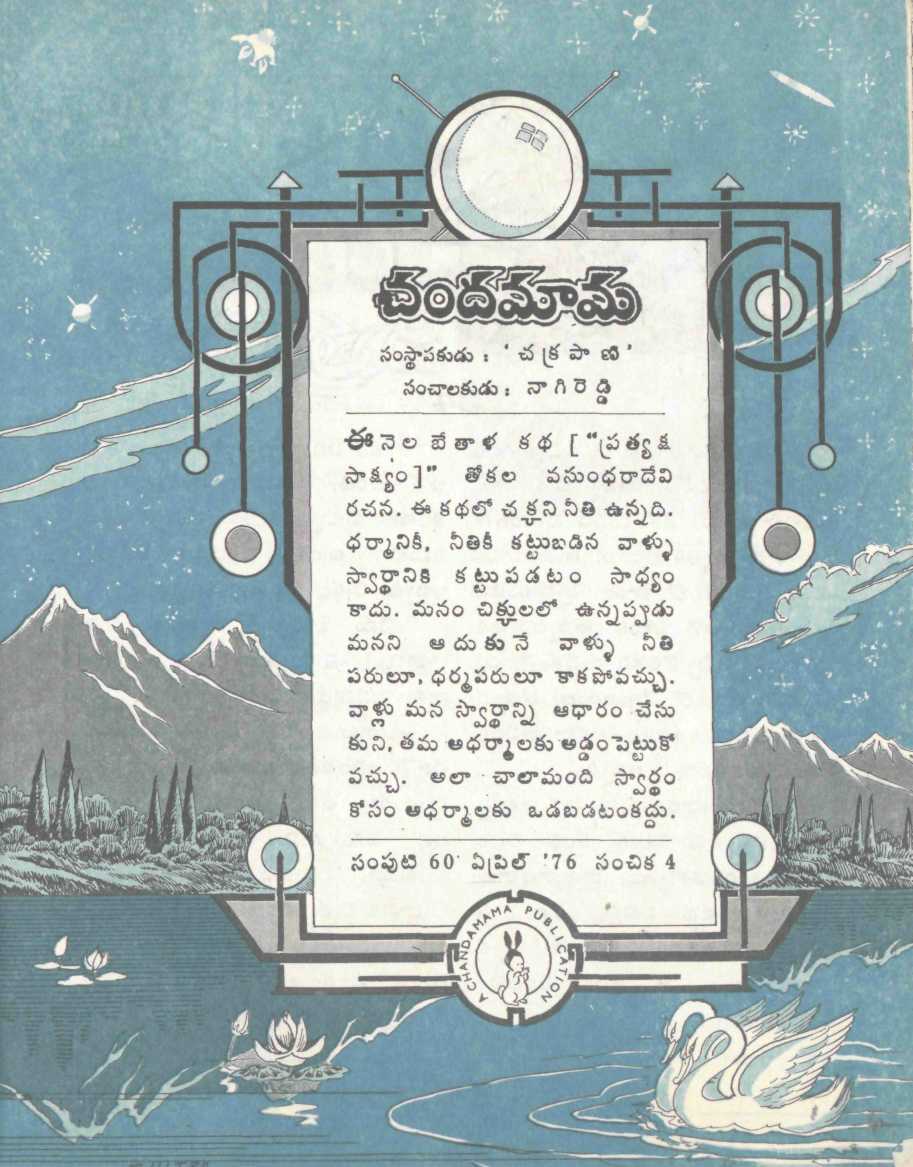 చందమామ
సంస్థాపకుడు : ' చ క్ర పా ణి '
సంచాలకుడు : నా గి రె డ్డి
ఈ నెల బేతాళ కథ [ "ప్రత్యక్ష
సాక్ష్యం ]" తోకల వసుంధరాదేవి
రచన. ఈ కథలో చక్కని నీతి ఉన్నది.
ధర్మానికీ, నీతికీ కట్టుబడిన వాళ్ళు
స్వార్థానికి కట్టుపడటం సాధ్యం
కాదు. మనం చిక్కులలో ఉన్నప్పుడు
మనని ఆదుకునే వాళ్ళు నీతి
పరులూ, ధర్మపరులూ కాకపోవచ్చు.
వాళ్లు మన స్వార్థాన్ని ఆధారం చేసు
కుని, తమ అధర్మాలకు అడ్డంపెట్టుకో
వచ్చు. అలా చాలామంది స్వార్థం
కోసం అధర్మాలకు ఒడబడటంకద్దు.
సంపుటి 60 ఏప్రిల్ '76 సంచిక 4
A CHANDAMAMA PUBLICATION